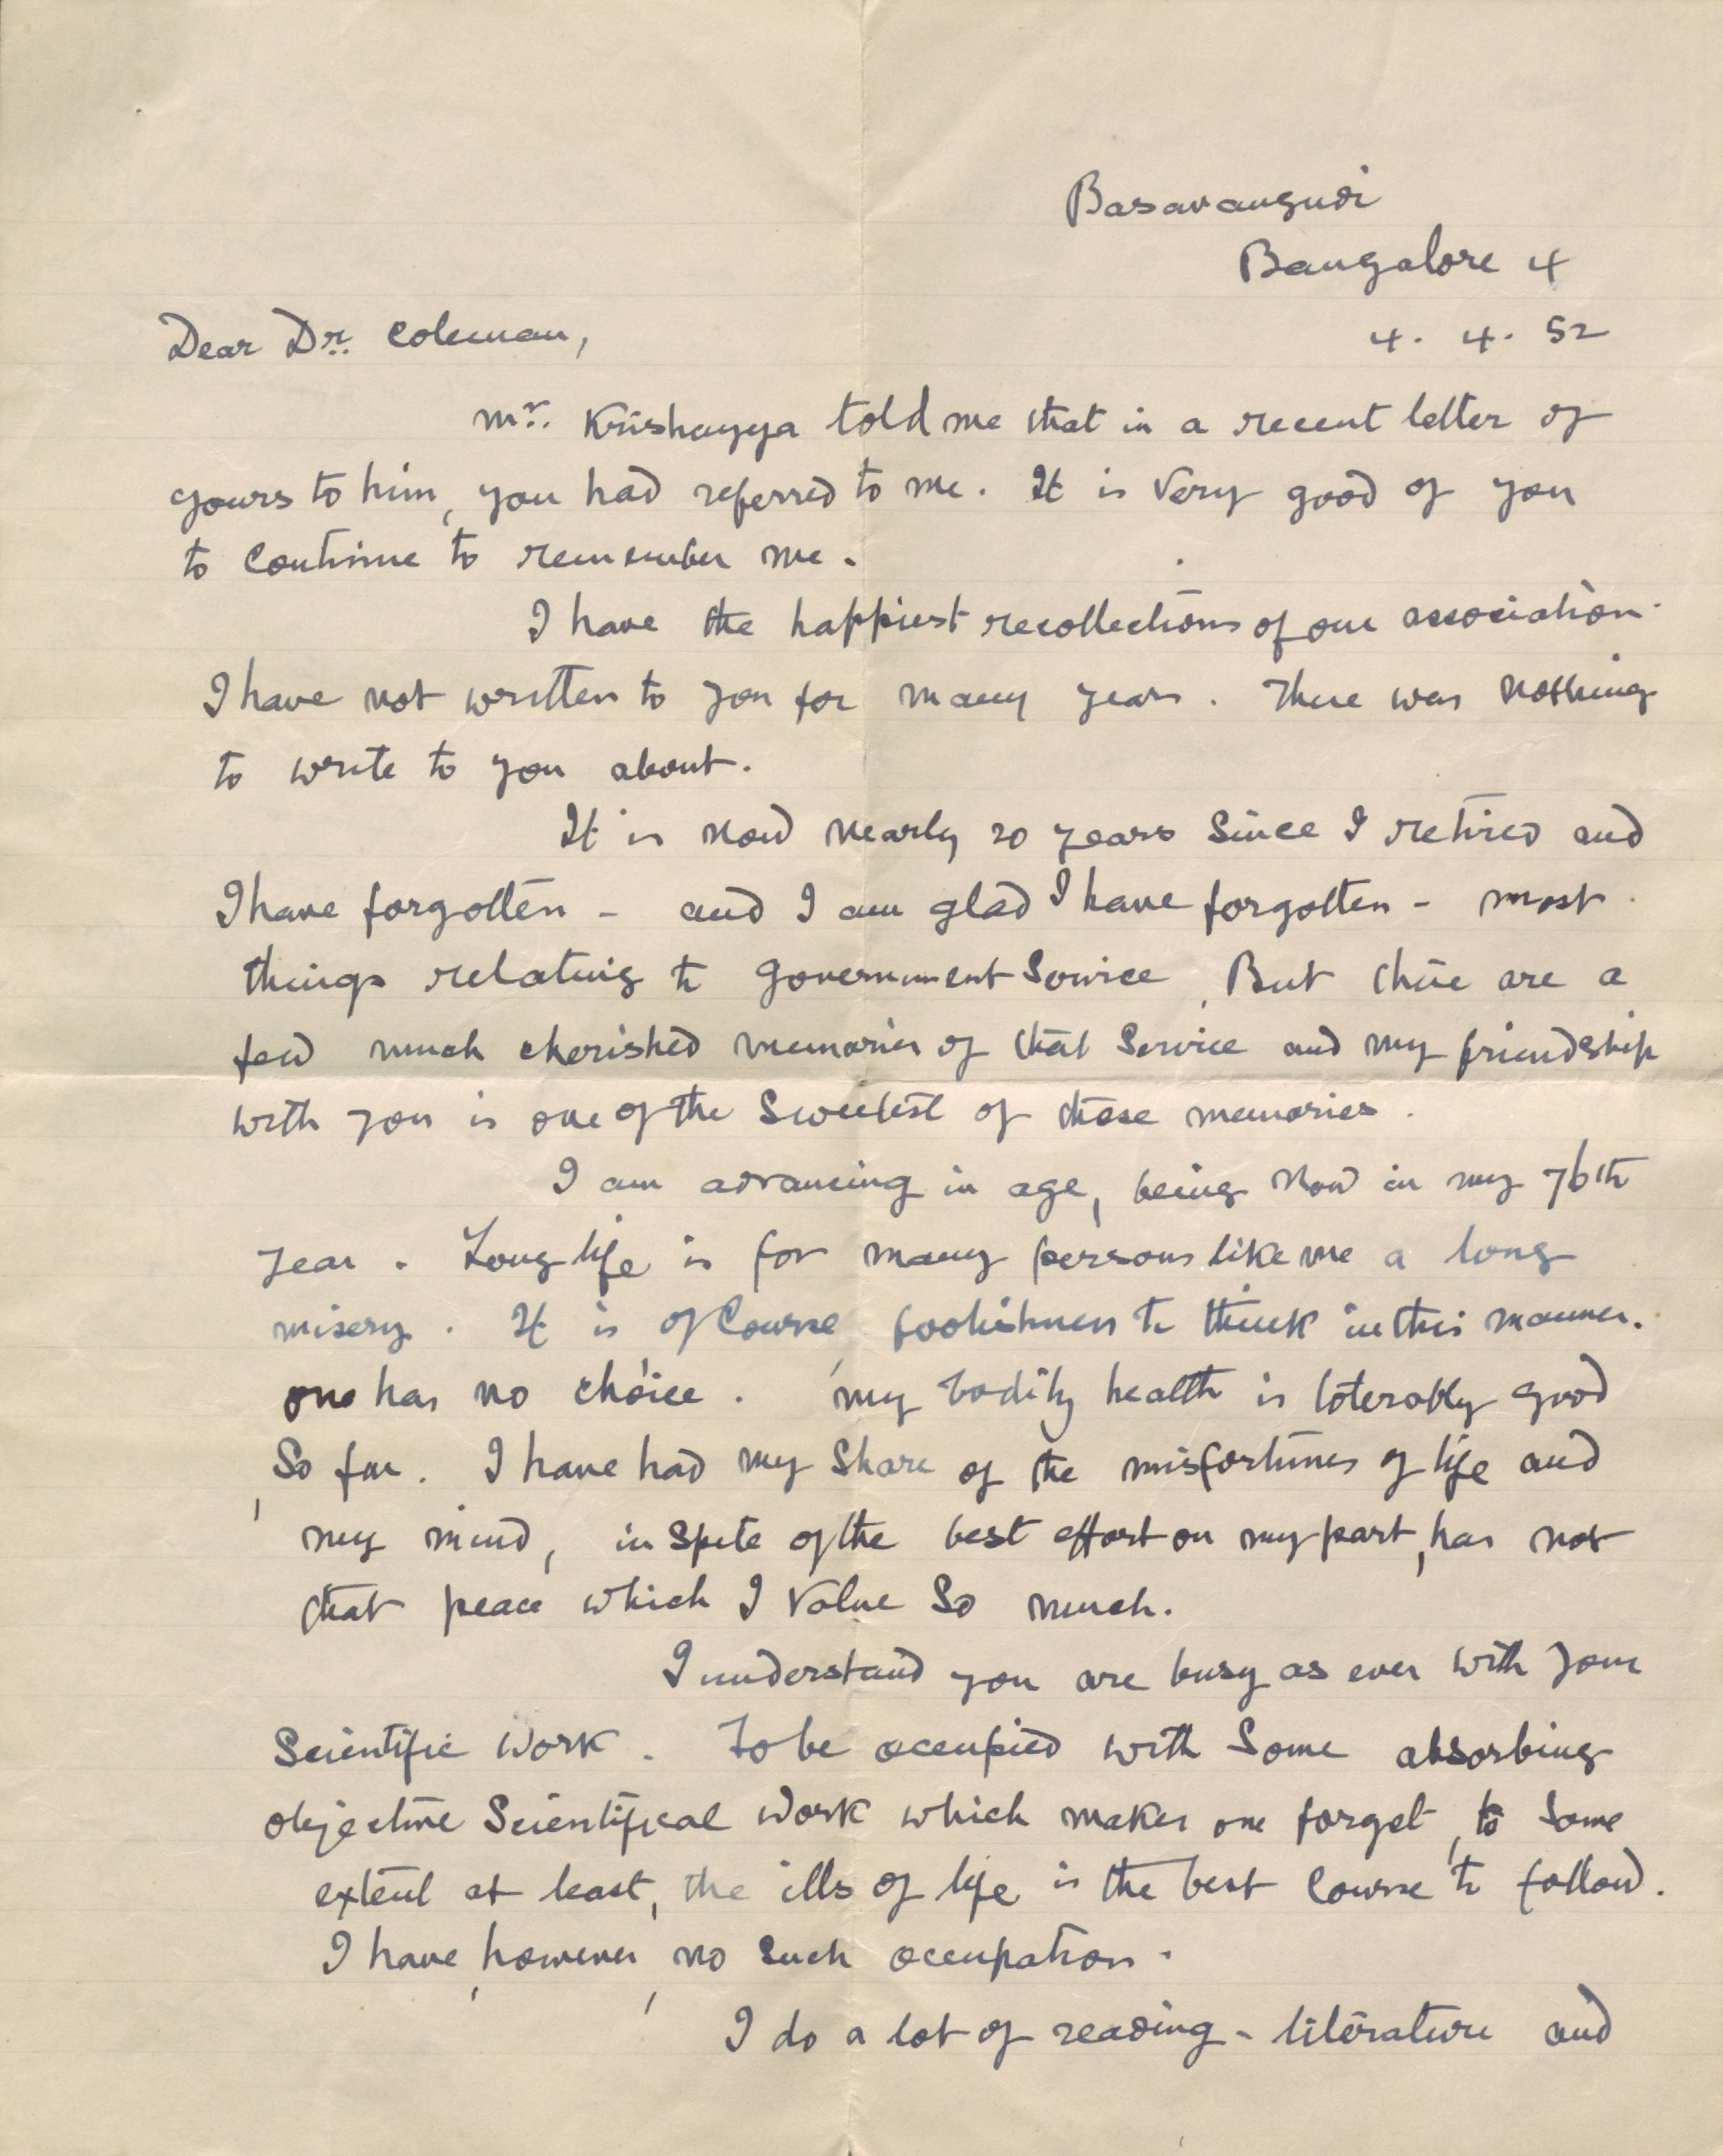 Basavangudi
Bangalore 4
4. 4. 52
Dear Dr. Coleman,
Mr. Krishayya told me that in a recent letter of
yours to him, you had referred to me. It is very good of you
to continue to remember me.
I have the happiest recollections of our association.
I have not written to you for many years. There was nothing
to write to you about.
It is now nearly 20 years since I retired and
I have forgotten - and I am glad I have forgotten - most
things relating to government service, But there are a
few much cherished memories of that service and my friendship
with you is one of the sweetest of these memories.
I am advancing in age, being now in my 76th
year. Long life is for many persons like me a long
misery. It is of course foolishness to think in this manner.
one has no choice. My bodily health is tolerably good
so far. I have had my share of the misfortunes of life and
my mind, in spite of the best effort on my part, has not
that peace which I value so much.
I understand you are busy as ever with your
scientific work. To be occupied with some absorbing
objective scientifical work which makes one forget, to some
extent at least, the ills of life is the best course to follow.
I have, however, no such occupation.
I do a lot of reading - literature and